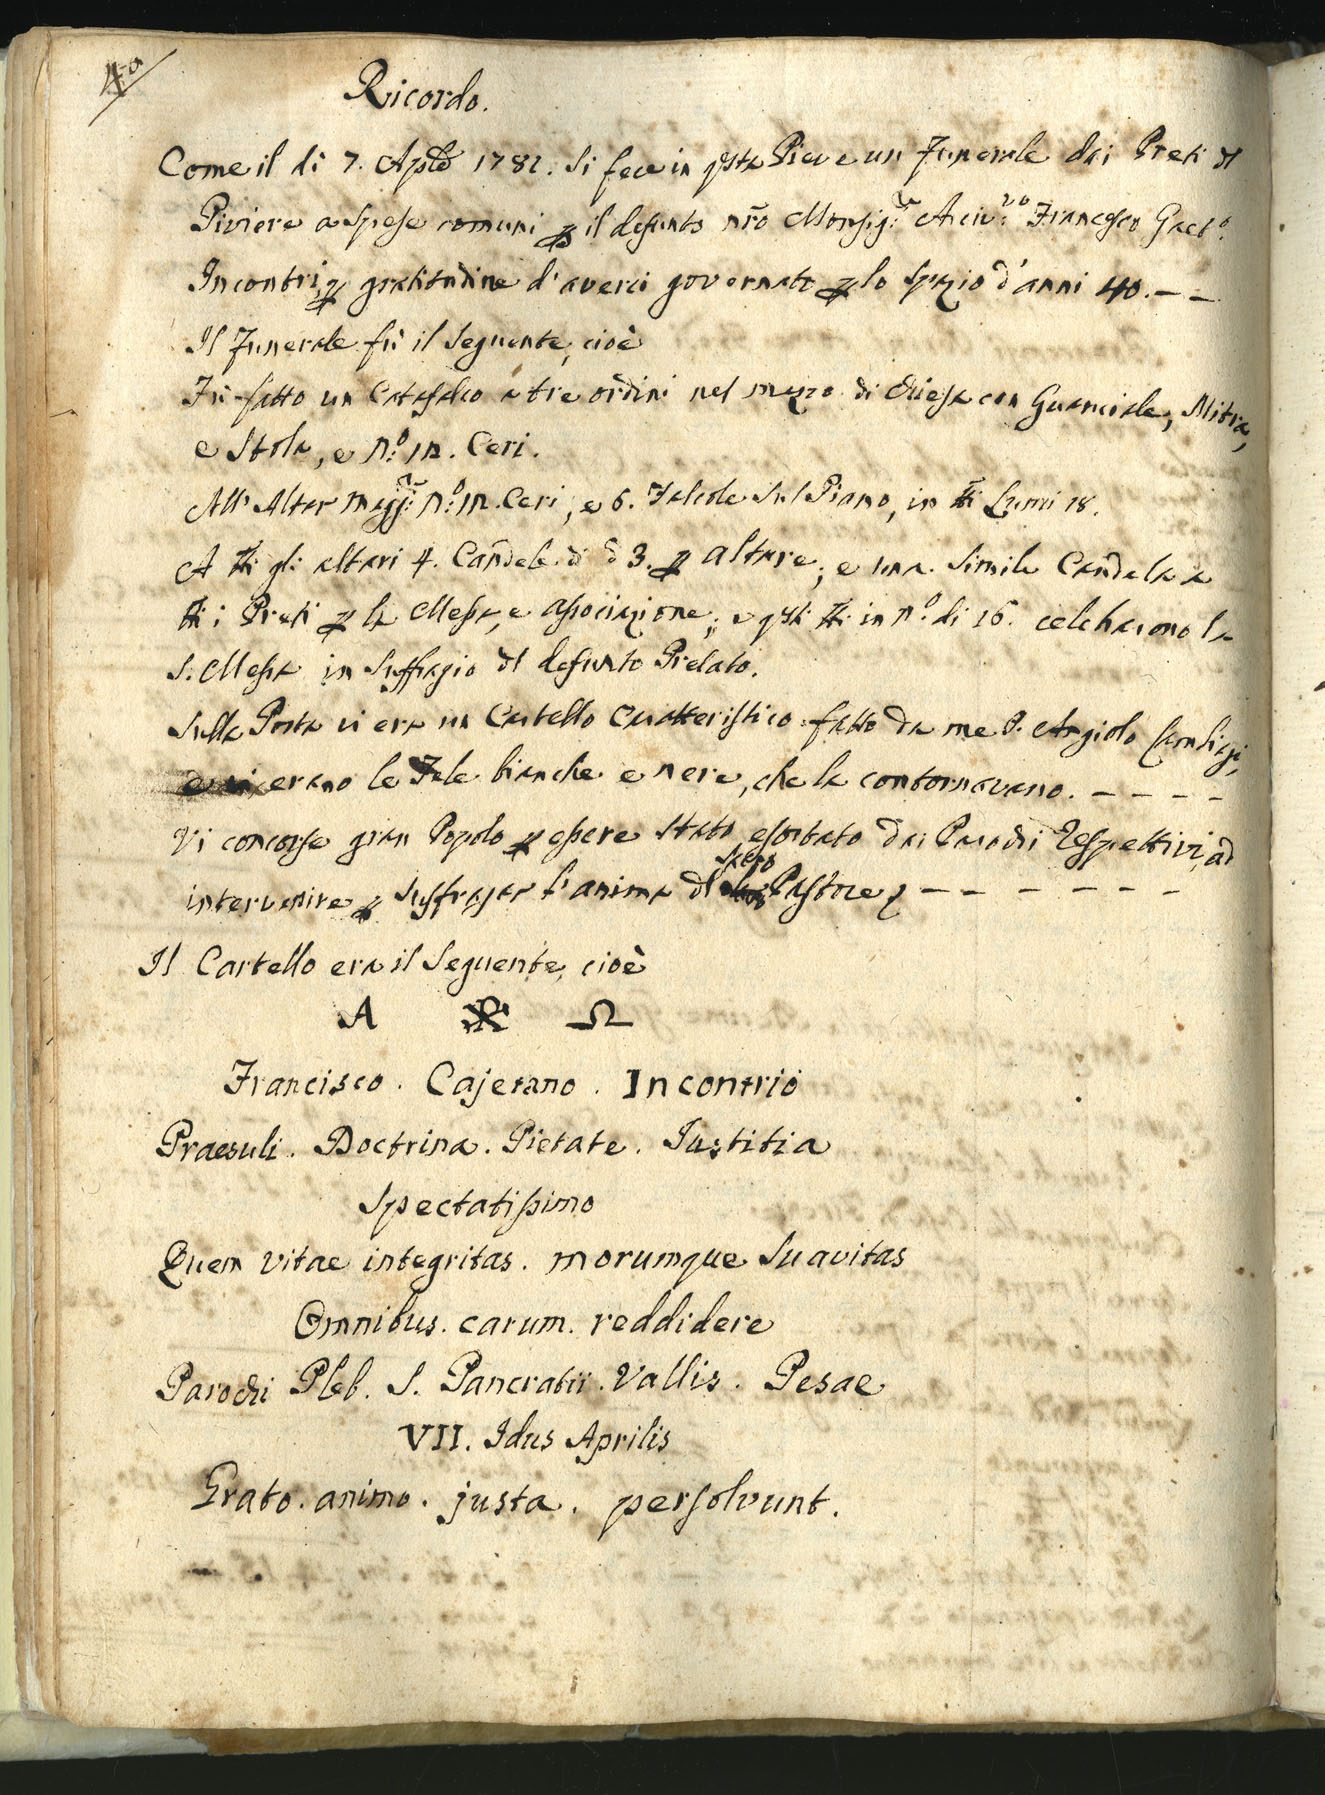 40
Ricordo.
Come il di 7. Aple 1781. si fece in qsta Pieve un Funerale dai Preti dl
Piviere a spese comuni p il defunto nro Monsig.re Arciv.vo Francesco Gaet.o
Incontri, p gratitudine d'averci governato p lo spazio d'anni 40. – –
Il Funerale fù il seguente, cioè
Fù fatto un Catafalco a tre ordini nel mezzo di Chiesa con Guanciale, Mitra,
e Stola, e n.o 12. Ceri.
All'Altar Magg.re n.o 12. Ceri, e 6. Falcole sul Piano, in tti Lumi 18.
A tti gli altari 4. Candele di d 3. p altare, e una simile Candela a
tti i Preti p la Messa, e associazione; e qsti tti in n.o di 16. celebrarono la
S. Messa in suffragio dl defunto Prelato.
Sulla Porta vi era un Cartello caratteristico fatto da me P. Angiolo
e vi erano le Tele bianche e nere, che la contornavano. – – – –
Vi concorse gran Popolo p essere stato esortato dai Parochi respettivi, ad
intervenire p suffragar l'anima dl sacro Pastore – – – – – – –
Il Cartello era il seguente, cioè
A ☧ Ω
Francisco . Cajetano . Incontrio
Praesuli . Doctrina . Pietate . Iustitia
Spectatissimo
Quem vitae integritas . morumque suavitas
Omnibus . carum . reddidere
Parochi Pleb . S . Pancratii . Vallis . Pesae
VII. Idus Aprilis
Grato . animo . justa . persolvunt .